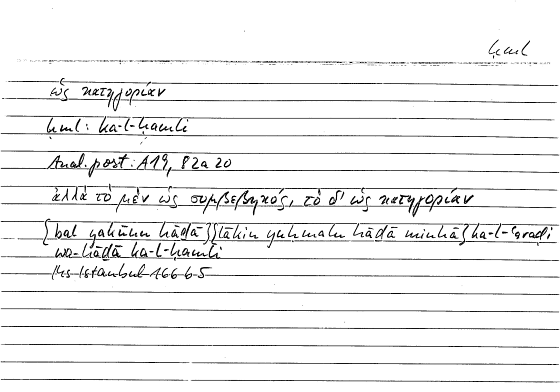 ḥml
ὡς κατηγορίαν
ḥml: ka-l-ḥamli
Anal. post.: A19, 82a20
ἀλλὰ τὸ μὲν ὡς συμβεβηκός, τὸ δ' ὡς κατηγορίαν
{bal yakūnu hāḏā}{lākin yuḥmalu hāḏā minhā} ka-l-ʿaraḍi
wa-hāḏā ka-l-ḥamli
Ms Istanbul 1666-5